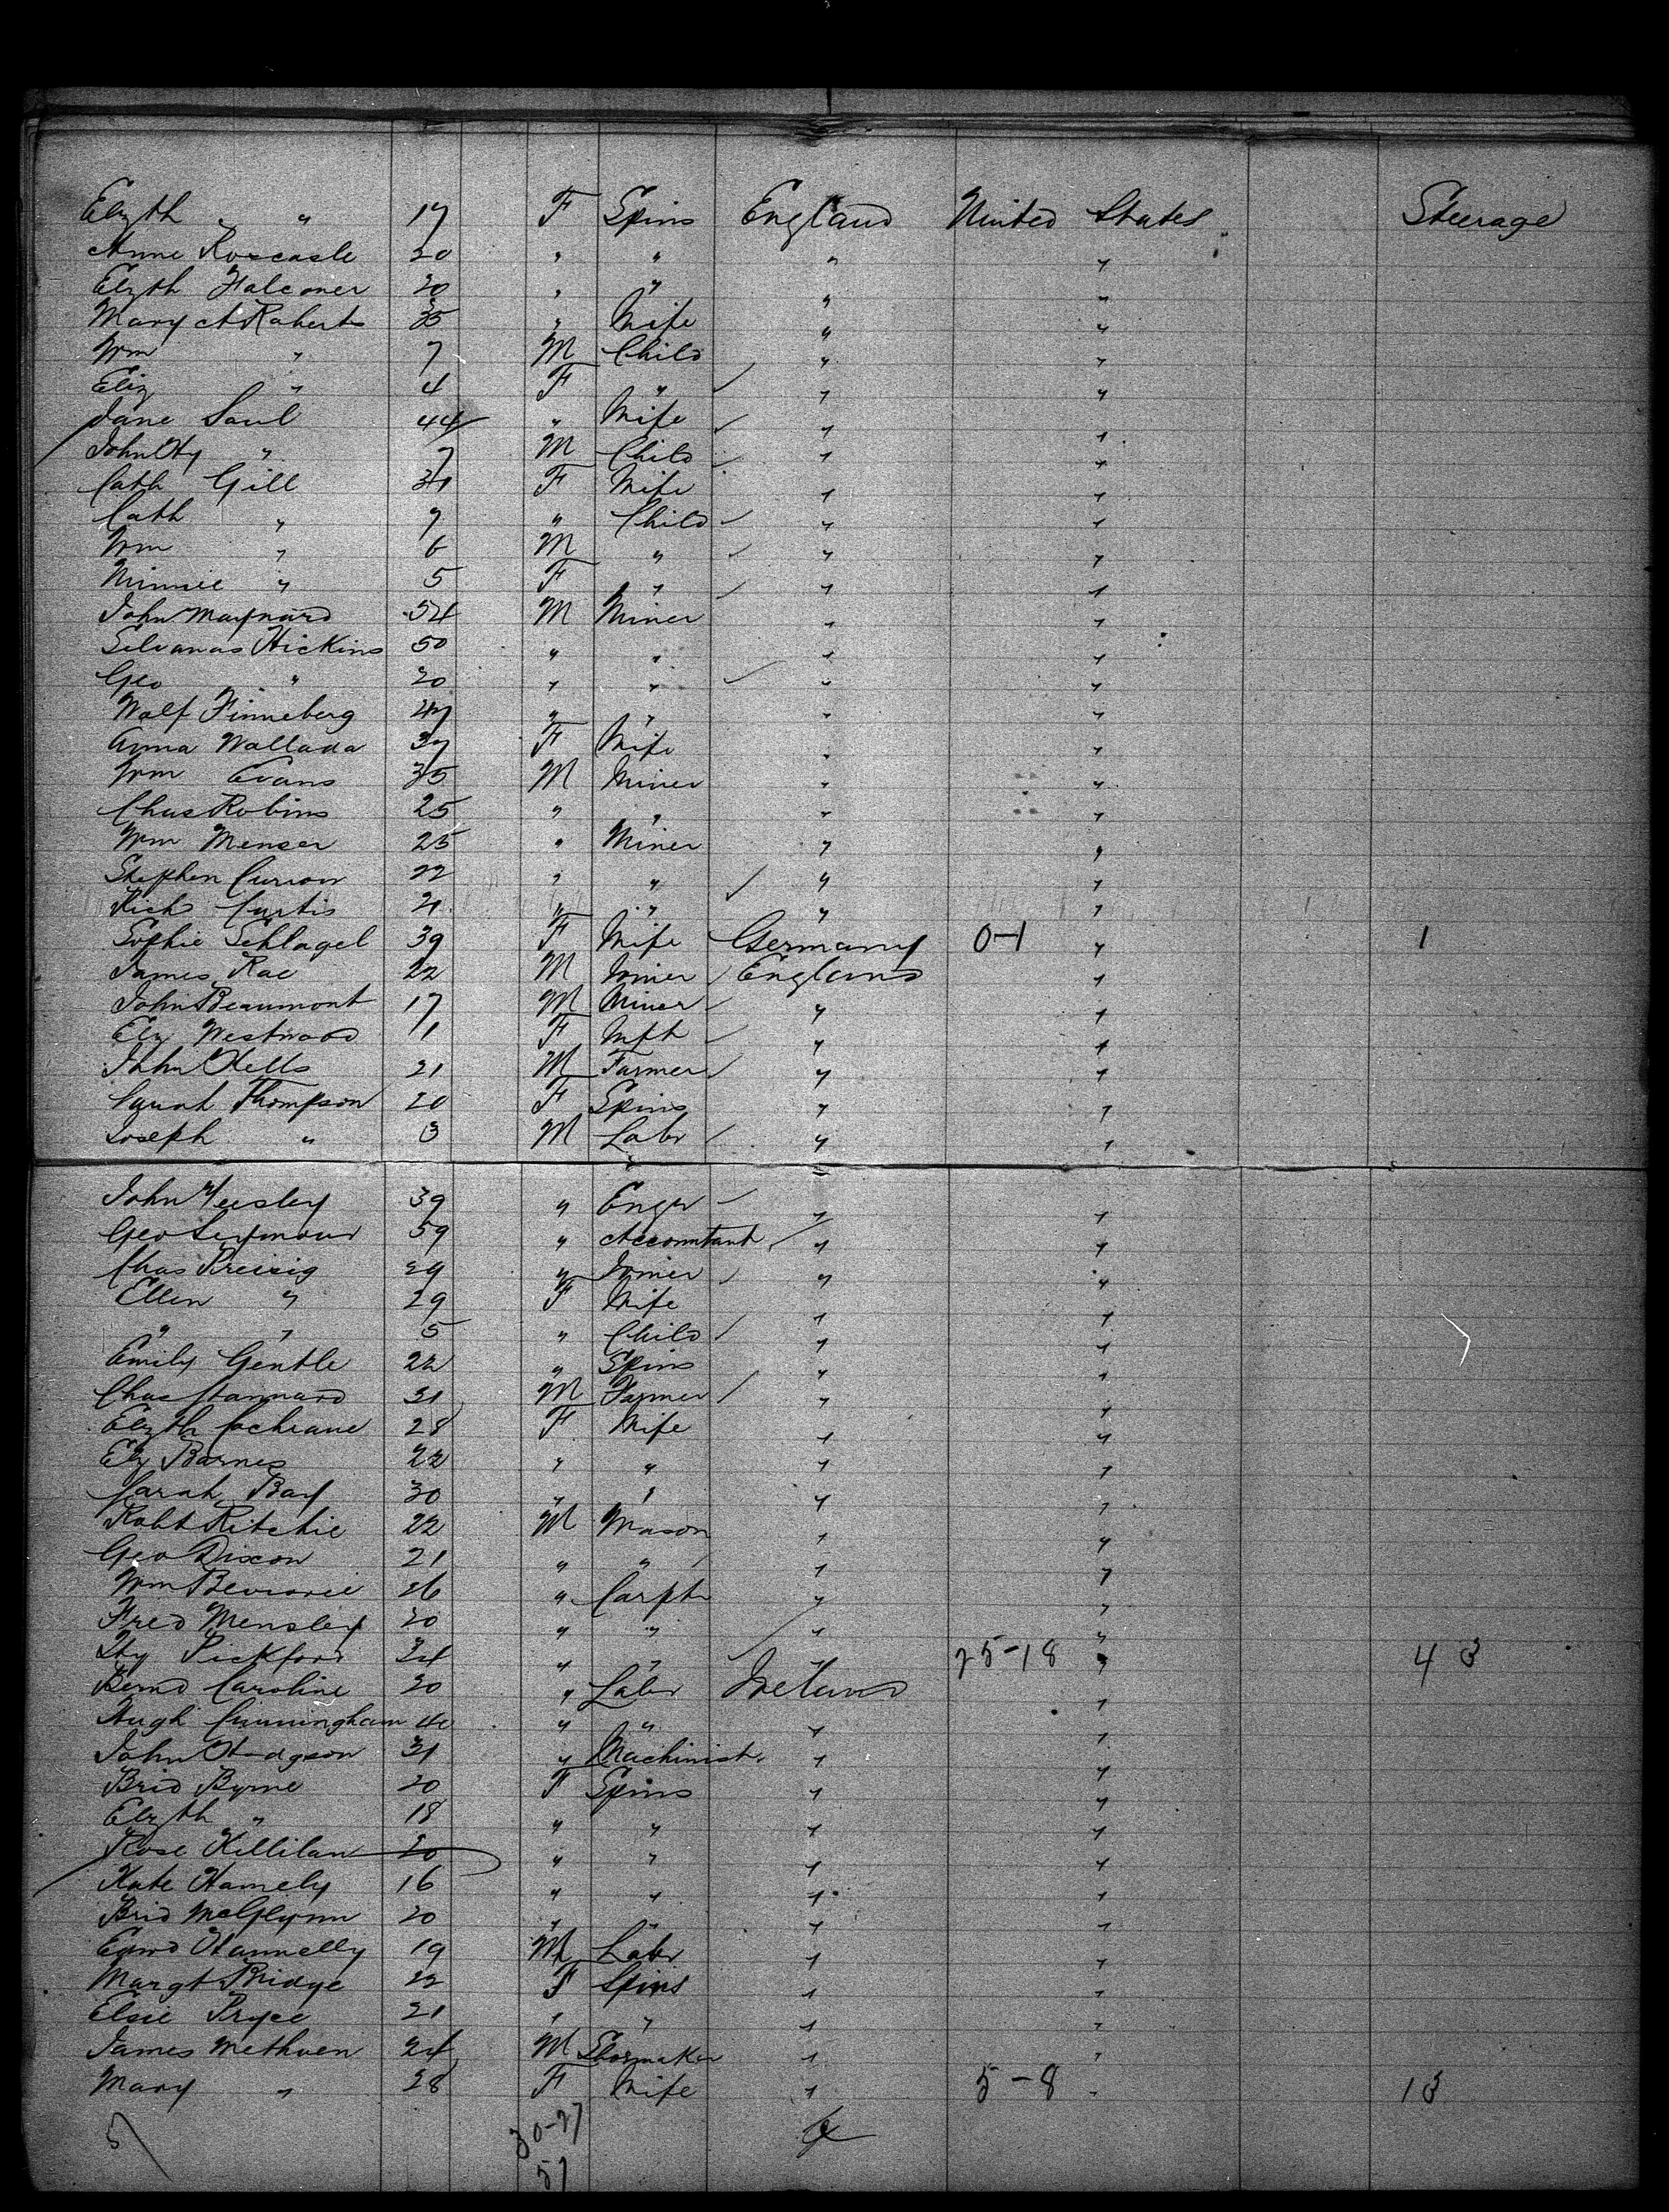 Elzth " " 17 F Spins England United States Steerage
Anne Roscasle 20 " " " "
Elzth Falconer 20 " " " "
Mary A Roberts 35 " Wife " "
Wm " 7 M Child " "
Eliz " 4 F " " "
Jane Saul 44 " Wife " "
John Hy " 7 M Child " "
Cath Gill 31 F Wife " "
Cath " 9 " Child " "
Wm " 6 M " " "
Minnie " 5 F " " "
John Maynard 54 M Miner " "
Silvanas Hickins 50 " " " "
Geo " 20 " " " "
Wolf Finneberg 47 " " " "
Anna Wallada 37 F Wife " "
Wm Evans 35 M Miner " "
Chas Robins 25 " " " "
Wm Menser 25 " Miner " "
Stephen Curnow 22 " " " "
Richd Curtis 21 " " " "
Sophie Schlagel 39 F Wife Germany 0-1 " 1
James Rae 22 M Joiner England "
John Beaumont 17 M Miner " "
Elz Westwood 11 F " "
John Kells 21 M Farmer " "
Sarah Thompson 20 F Spins " "
Joseph " 3 M Labr " "
John Yeesley 39 " Engr " "
Geo Seymour 59 " Accountant " "
Chas Preisig 29 " Joiner " "
Ellen " 29 F Wife " "
" " 5 " Child " "
Emily Gentle 22 " Spins " "
Chas Stannard 31 M Farmer " "
Elzth Cochrane 28 F Wife " "
Elz Barnes 22 " " " "
Sarah Bay 30 " " " "
Robt Ritchie 22 M Mason " "
Geo Dixon 21 " " " "
Wm 26 " Carptr " "
Fred Mensley 20 " " " "
Hy Pickford 24 " " " 25-18 " 43
Bernd Caroline 20 " Labr Ireland "
Hugh Cunningham 40 " " " "
John Hodgson 31 " Machinist " "
Brid Byrne 20 F Spins " "
Elzth " 18 " " " "
Rose Killilan 20 " " " "
Kate Hamely 16 " " " "
Brid McGlynn 20 " " " "
Edwd Hannelly 19 M Labr " "
Margt Bridge 22 F Spins " "
Elsie Pryce 21 " " " "
James Methven 24 M Shoemaker " "
Mary " 28 F Wife " 5-8 " 13
57 30-27
57